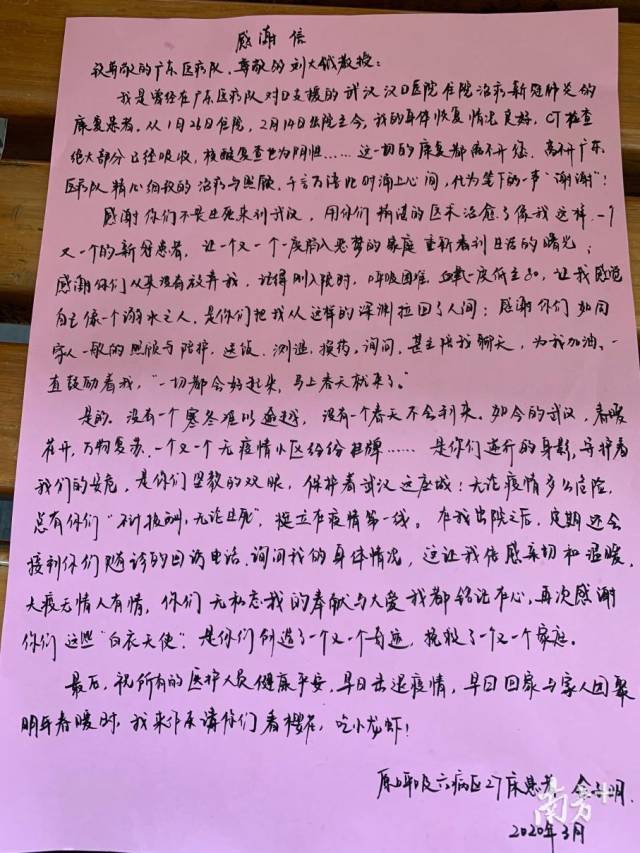 感谢信
致尊敬的广东医疗队、尊敬的刘大钺教授：
我是曾经在广东医疗队对口支援的武汉汉口医院住院治疗新冠肺炎的
康复患者。从1月26日住院，2月14日出院至今，我的身体恢复情况良好，CT检查
绝大部分已经吸收，核酸复查也为阴性……这一切的康复都离不开您，离不开广东
医疗队精心细致的治疗与照顾，千言万语此时涌上心间，化为笔下的一声“谢谢”！
感谢你们不畏生死来到武汉，用你们精湛的医术治愈了像我这样一个
又一个的新冠患者，让一个又一个一度陷入噩梦的家庭重新看到生活的曙光；
感谢你们从来没有放弃我，记得刚入院时，呼吸困难，血氧一度低至80，让我感觉
自己像一个溺水之人，是你们把我从这样的深渊拉回了人间；感谢你们如同
家人一般的照顾与陪护，送饭、测温、换药、询问，甚至陪我聊天，为我加油，一
直鼓励着我，“一切都会好起来，马上春天就来了。”
是的。没有一个寒冬难以逾越，没有一个春天不会到来。如今的武汉，春暖
花开，万物复苏，一个又一个无疫情小区纷纷挂牌……是你们逆行的身影，守护着
我们的安危，是你们坚毅的双眼，保护着武汉这座城！无论疫情多么危险，
总有你们“不计报酬，无论生死”，挺立在疫情第一线。在我出院之后，定期还会
接到你们随诊的回访电话，询问我的身体情况，这让我倍感亲切和温暖，
大疫无情人有情，你们无私忘我的奉献与大爱我都铭记在心，再次感谢
你们这些“白衣天使”：是你们创造了一个又一个奇迹，挽救了一个又一个家庭。
最后，祝所有的医护人员健康平安，早日击退疫情，早日回家与家人团聚
明年春暖时，我来作东请你们看樱花，吃小龙虾！
原呼吸六病区27床患者 金 明
2020年3月
南方+